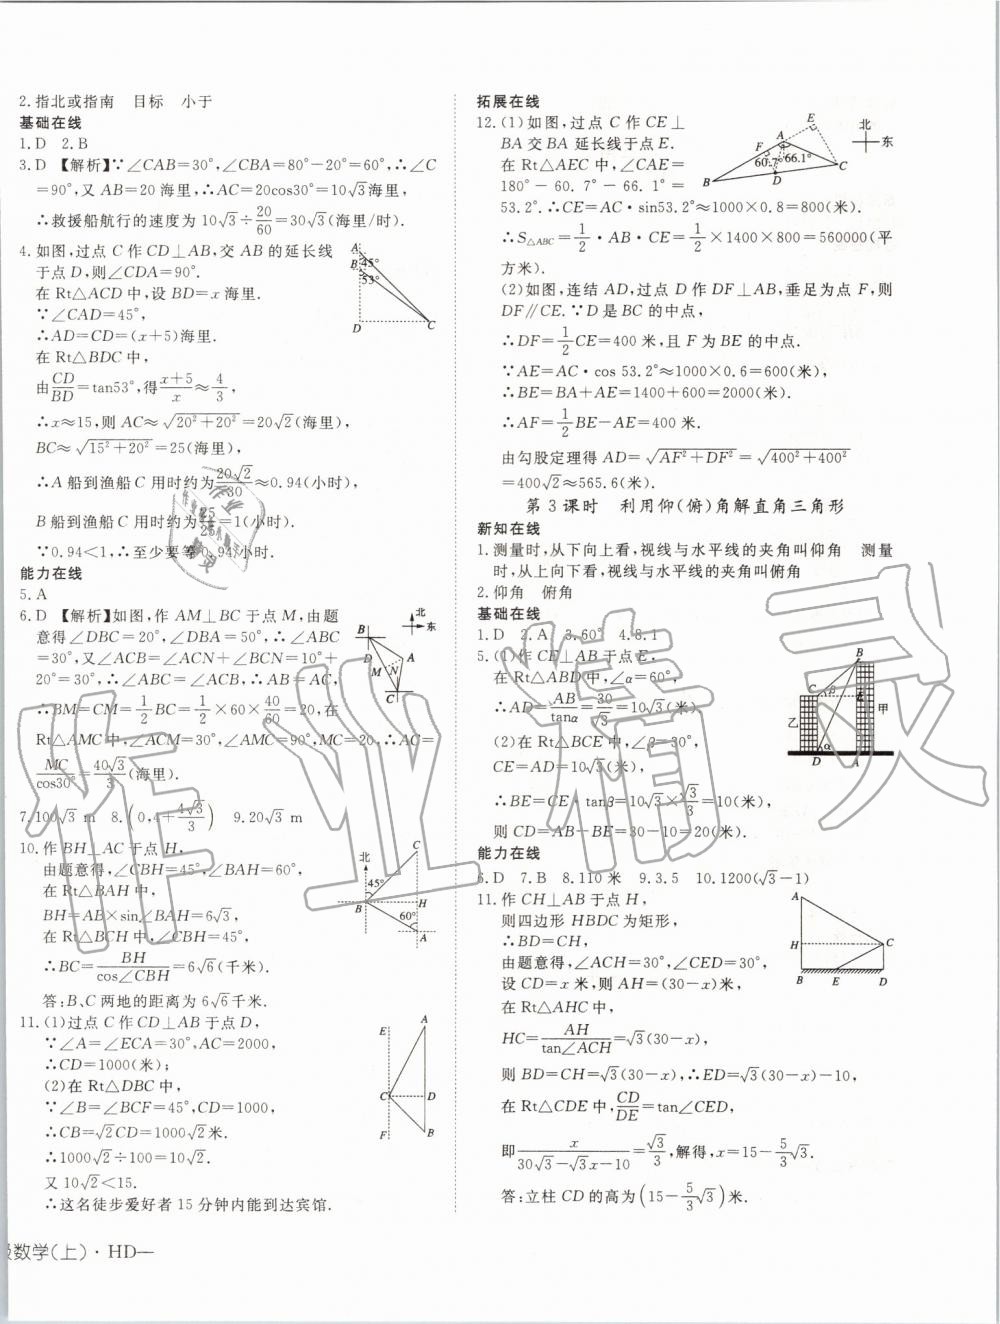 2.指北或指南　目标　小于
基础在线
1.D　2.B
3.D 【解析】∵∠CAB=30°,∠CBA=80°-20°=60°,∴∠C
=90°,又 AB=20 海里,∴AC=20cos30°=10√3海里.
∴救援船航行的速度为 10√3÷20/60=30√3(海里/时).
4.如图,过点 C 作 CD⊥AB,交 AB 的延长线
于点 D,则∠CDA=90°.
在 Rt△ACD 中,设 BD=x 海里.
∵∠CAD=45°,
∴AD=CD=(x+5)海里.
在 Rt△BDC 中,
由CD/BD=tan53°,得(x+5)/x≈4/3,
∴x≈15,则 AC≈√(20²+20²)=20√2(海里),
BC≈√(15²+20²)=25(海里),
∴A 船到渔船 C 用时约为20√2/30≈0.94(小时),
B 船到渔船 C 用时约为25/25=1(小时).
∵0.94<1,∴至少要等 0.94 小时.
A
B
45°
53°
D
C
能力在线
5.A
6.D 【解析】如图,作 AM⊥BC 于点 M,由题
意得∠DBC=20°,∠DBA=50°,∴∠ABC
=30°,又∠ACB=∠ACN+∠BCN=10°+
20°=30°,∴∠ABC=∠ACB,∴AB=AC,
∴BM=CM=1/2BC=1/2×60×40/60=20,在
Rt△AMC 中,∠ACM=30°,∠AMC=90°,MC=20,∴AC=
MC/cos30°=40√3/3(海里).
北
东
B
D
A
M
N
C
7.100√3 m　8.(0,4+4√3/3)　9.20√3 m
10.作 BH⊥AC 于点 H,
由题意得,∠CBH=45°,∠BAH=60°,
在 Rt△BAH 中,
BH=AB×sin∠BAH=6√3,
在 Rt△BCH 中,∠CBH=45°,
∴BC=BH/cos∠CBH=6√6(千米).
答:B、C 两地的距离为 6√6千米.
北
C
45°
B
H
60°
A
11.(1)过点 C 作 CD⊥AB 于点 D,
∵∠A=∠ECA=30°,AC=2000,
∴CD=1000(米);
(2)在 Rt△DBC 中,
∵∠B=∠BCF=45°,CD=1000,
∴CB=√2CD=1000√2米.
∴1000√2÷100=10√2.
又 10√2<15.
∴这名徒步爱好者 15 分钟内能到达宾馆.
E
A
C
D
F
B
级数学(上)·HD—
拓展在线
12.(1)如图,过点 C 作 CE⊥
BA 交 BA 延长线于点 E.
在 Rt△AEC 中,∠CAE=
180°-60.7°-66.1°=
53.2°.∴CE=AC·sin53.2°≈1000×0.8=800(米).
∴S△ABC=1/2·AB·CE=1/2×1400×800=560000(平
方米).
(2)如图,连结 AD,过点 D 作 DF⊥AB,垂足为点 F,则
DF∥CE.∵D 是 BC 的中点,
∴DF=1/2CE=400 米,且 F 为 BE 的中点.
∵AE=AC·cos 53.2°≈1000×0.6=600(米),
∴BE=BA+AE=1400+600=2000(米).
∴AF=1/2BE-AE=400 米.
由勾股定理得 AD=√(AF²+DF²)=√(400²+400²)
=400√2≈565.6(米).
E
A
F
60.7°
66.1°
B
D
C
北
东
第 3 课时　利用仰(俯)角解直角三角形
新知在线
1.测量时,从下向上看,视线与水平线的夹角叫仰角　测量
时,从上向下看,视线与水平线的夹角叫俯角
2.仰角　俯角
基础在线
1.D　2.A　3.60°　4.8.1
5.(1)作 CE⊥AB 于点 E,
在 Rt△ABD 中,∠α=60°,
∴AD=AB/tanα=30/√3=10√3(米)
(2)在 Rt△BCE 中,∠β=30°,
CE=AD=10√3(米),
∴BE=CE·tanβ=10√3×√3/3=10(米),
则 CD=AB-BE=30-10=20(米).
B
C
β
E
乙
甲
α
D
A
能力在线
6.D　7.B　8.110 米　9.3.5　10.1200(√3-1)
11.作 CH⊥AB 于点 H,
则四边形 HBDC 为矩形,
∴BD=CH,
由题意得,∠ACH=30°,∠CED=30°,
设 CD=x 米,则 AH=(30-x)米,
在 Rt△AHC 中,
HC=AH/tan∠ACH=√3(30-x),
则 BD=CH=√3(30-x),∴ED=√3(30-x)-10,
在 Rt△CDE 中,CD/DE=tan∠CED,
即x/(30√3-√3x-10)=√3/3,解得,x=15-5/3√3.
答:立柱 CD 的高为(15-5/3√3)米.
A
H
C
B
E
D
作业精灵